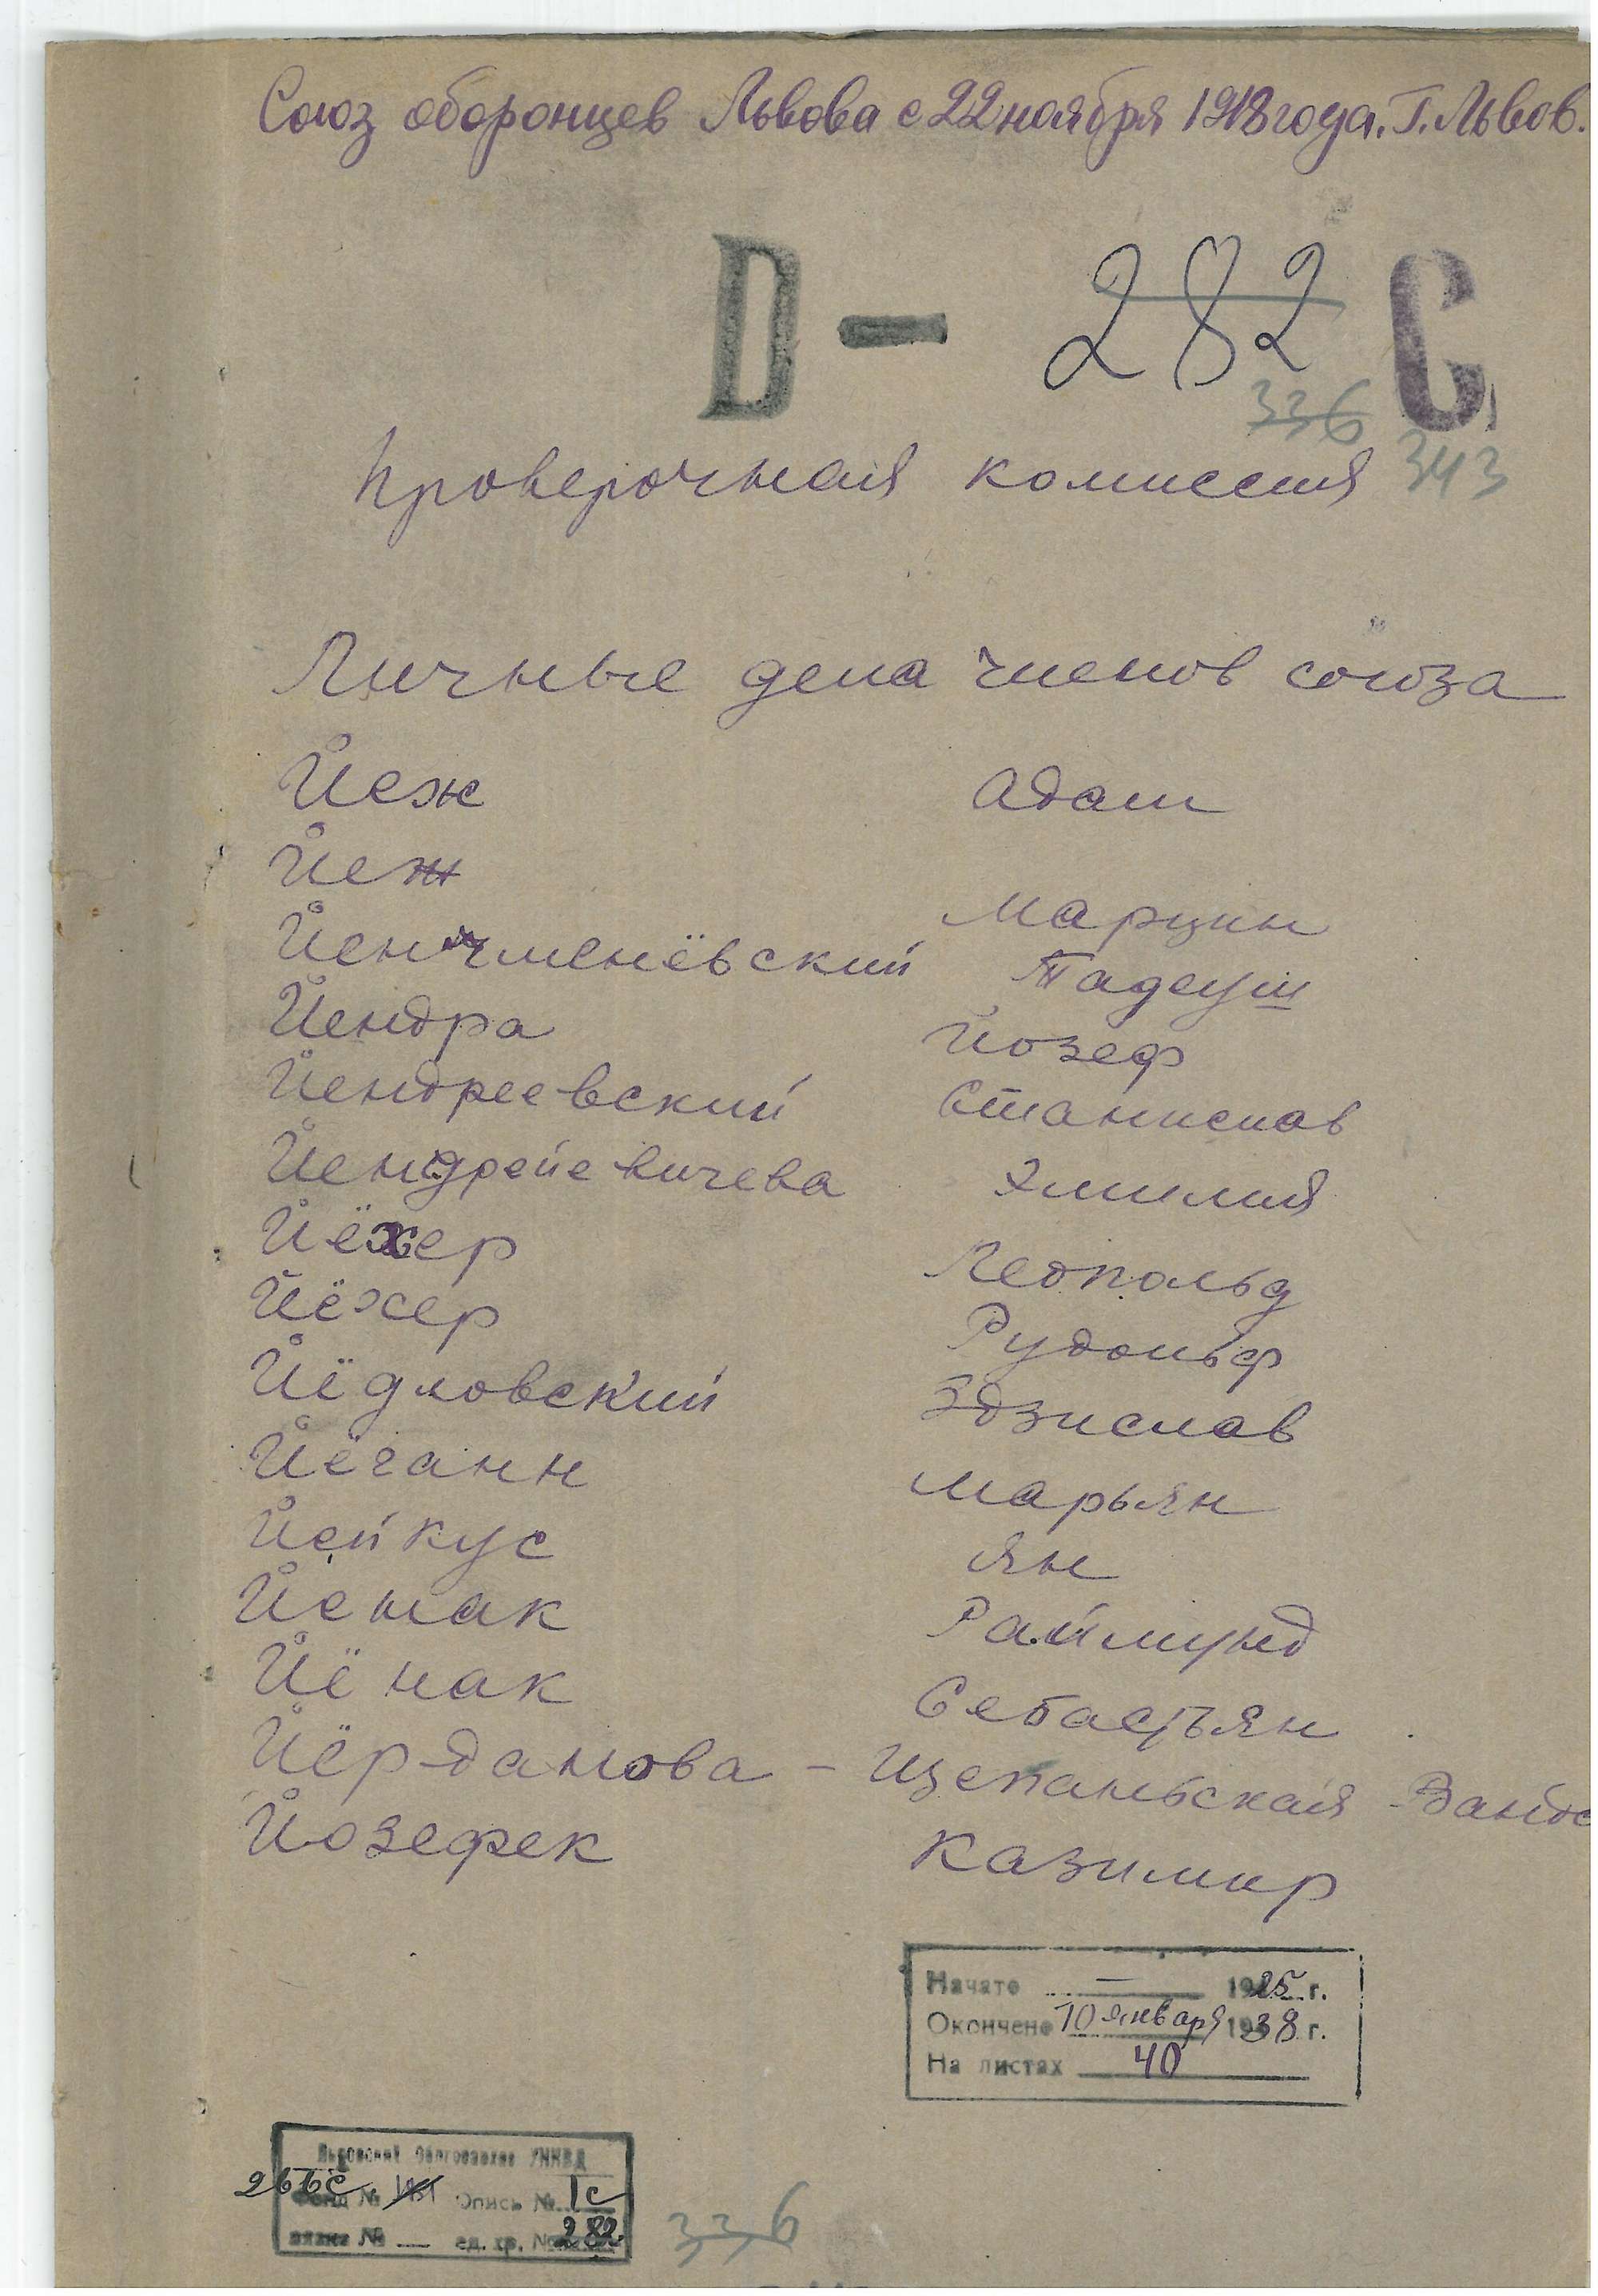 Союз оборонцев Львова с 22 ноября 1918 года. Г. Львов.
D — 282 С
336
343
Проверочная комиссия
Личные дела членов союза
Йеж Адам
Йеж Марцин
Йенчменёвский Тадеуш
Йендра Йозеф
Йендреевский Станислав
Йендрейевичева Эмилия
Йёхер Леопольд
Йёхер Рудольф
Йёдловский Здзислав
Йёганн Марьян
Йейкус Ян
Йёнак Раймунд
Йёнак Себастьян
Йёрданова - Щепаньская Ванда
Йозефек Казимир
Начато — 1925 г.
Окончено 10 января 1938 г.
На листах 40
Львовский Облгосархив УНКВД
266с Фонд № Опись № 1с
вязка № ед. хр. № 282
336